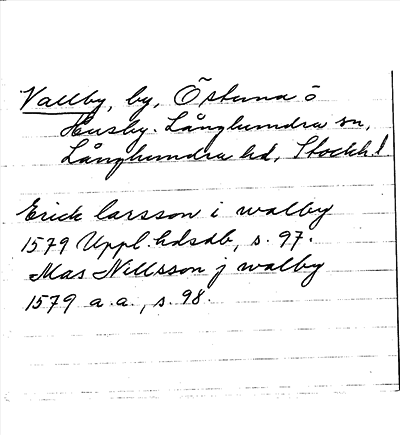 Vallby, by, Östuna o
Husby-Långhundra sn,
Långhundra hd, Stockh. l
Erick larsson i walby
1579 Uppl. hdsdb, s. 97.
Mas Nillsson j walby
1579 a.a., s. 98.